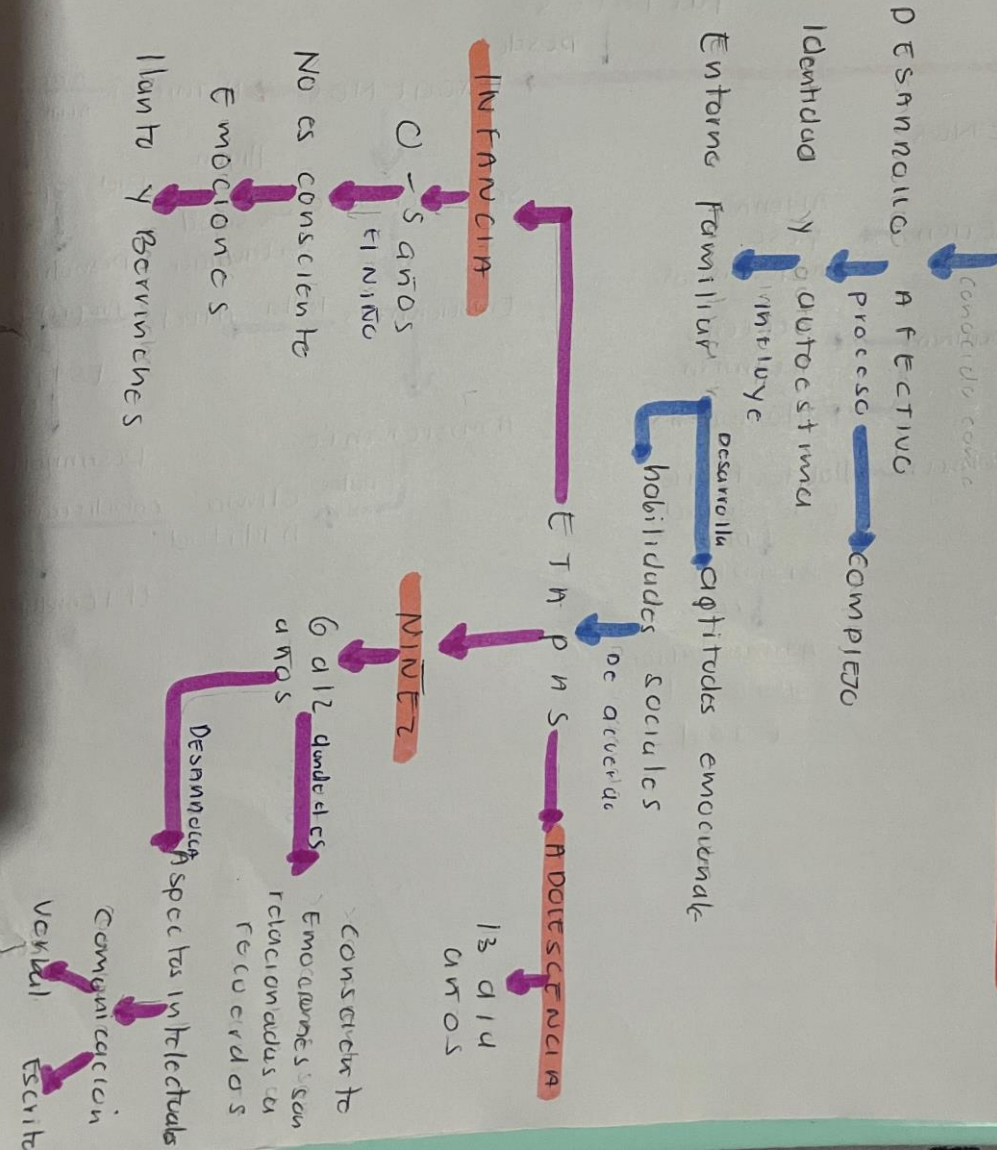 conocido como
DESARROLLO AFECTIVO
proceso
complejo
Identidad y autoestima
influye
Entorno Familiar
Desarrolla
aptitudes emocionale
habilidades sociales
De acuerdo
ETAPAS
INFANCIA
0-5 años
El Niño
No es consciente
Emociones
llanto y Berrinches
NIÑEZ
6 a 12
años
donde es
consciente
Emociones son
relacionadas a
recuerdos
DESARROLLA
Aspectos intelectuales
comunicación
verbal
Escrita
ADOLESCENCIA
13 a
años